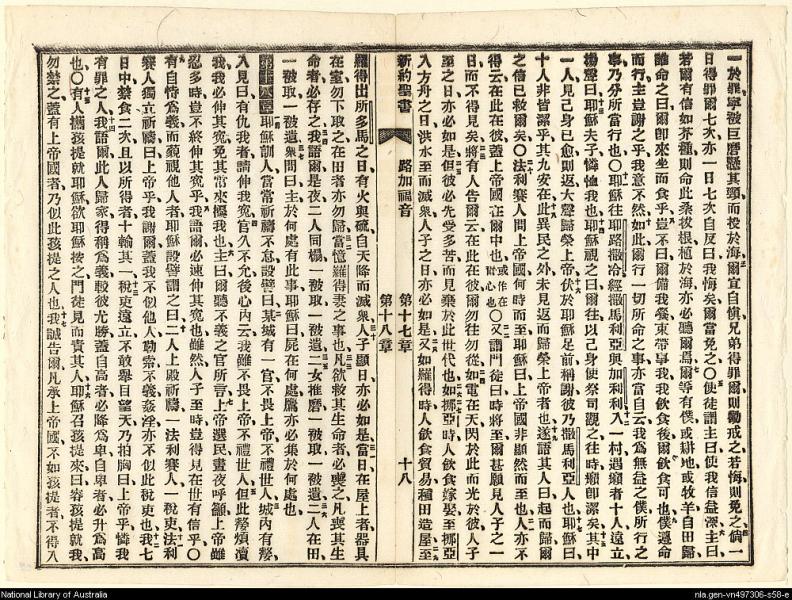 一於罪、寧被巨磨懸其頸而投於海、爾宜自愼、兄弟得罪爾則勸戒之、若悔則免之、倘一
日得罪爾七次、亦一日七次自反曰我悔矣、爾當免之○使徒謂主曰、使我信益深、主曰
若爾有信如芥種、則命此桑拔根植於海、亦必聽爾焉、爾等有僕或耕地或牧羊、自田歸
誰命之曰、爾卽來坐而食乎、豈不曰爾備我餐、束帶事我、我飲食後、爾飲食可也、僕遵命
而行、主豈謝之乎、我意不然、如此爾行一切所命之事、亦當自云、我爲無益之僕、所行之
事乃分所當行也○耶穌往耶路撒冷、經撒馬利亞與加利利、入一村、遇癩者十人、遠立
揚聲曰、耶穌夫子憐恤我也、耶穌視之曰、爾往以己身使祭司觀之、往時癩卽潔矣、其中
一人見己身已愈則返、大聲歸榮上帝、伏於耶穌足前稱謝、彼乃撒馬利亞人也、耶穌曰
十人非皆潔乎、其九安在、此異民之外、未見返而歸榮上帝者也、遂語其人曰、起而歸、爾
之信已救爾矣○法利賽人問上帝國何時而至、耶穌曰、上帝國非顯然而至也、人亦不
得云在此在彼、蓋上帝國在爾中也或作在爾心也○又謂門徒曰、時將至、爾甚願見人子之一
日而不得見矣、將有人告爾云、在此在彼、爾勿往勿從、如電在天閃於此而光於彼、人子
至之日亦必如是、但彼必先受多苦而見棄於此世代也、如挪亞時人飲食嫁娶、至挪亞
入方舟之日、洪水至而滅衆、人子之日亦必如是、又如羅得時、人飲食貿易種田造屋、至
新約聖書 路加福音 第十七章 第十八章 十八
羅得出所多馬之日、有火與硫自天降而滅衆、人子顯日亦必如是、當日在屋上者、器具
在室勿下取之、在田者亦勿歸、當憶羅得妻之事也、凡欲救其生命者必喪之、凡喪其生
命者必存之、我語爾、是夜二人同榻、一被取一被遺、二女推磨、一被取一被遺、二人在田
一被取一被遺、衆問曰、主於何處有此事、耶穌曰、屍在何處、鷹亦必集於何處也、
第十八章耶穌訓人當常祈禱不怠、設譬曰、某城有一官、不畏上帝不禮世人、城內有嫠
入見曰、有仇我者請伸我冤、官久不允、後心內云、我雖不畏上帝不禮世人、但此嫠煩瀆
我、我必伸其冤、免其常來擾我也、主曰、爾聽不義之官所言、上帝選民晝夜呼籲、上帝雖
忍多時、豈不終伸其冤乎、我語爾、必速伸其冤也、雖然人子至時、豈得見在世有信乎○
有自恃爲義而藐視他人者、耶穌設譬謂之曰、二人上殿祈禱、一法利賽人、一稅吏、法利
賽人獨立祈禱曰、上帝乎、我謝爾、蓋我不似他人勒索不義姦淫、亦不似此稅吏也、我七
日中禁食二次、且以所得者十輸其一、稅吏遠立、不敢舉目望天、乃拍胸曰、上帝乎憐我
有罪之人、我語爾、此人歸家得稱爲義、較彼尤勝、蓋自高者必降爲卑、自卑者必升爲高
也○有人攜孩提就耶穌、欲耶穌按之、門徒見而責其人、耶穌召孩提來曰、容孩提就我、
勿禁之、蓋有上帝國者乃似此孩提之人也、我誠告爾、凡承上帝國不如孩提者不得入
National Library of Australia
nla.gen-vn497306-s58-e